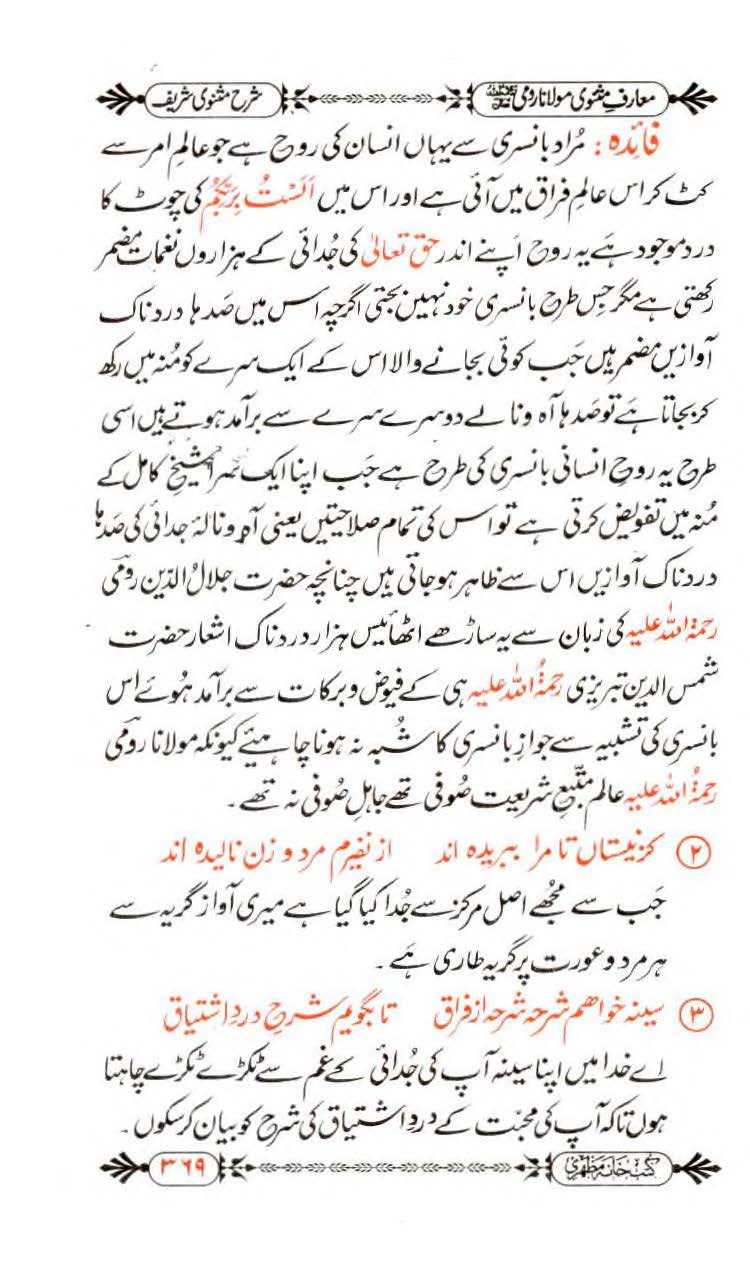 معارفِ مثنوی مولانا رومی شرح مثنوی شریف
فائدہ : مُراد بانسری سے یہاں انسان کی روح ہے جو عالمِ امر سے
کٹ کر اس عالمِ فراق میں آئی ہے اور اس میں اَلَسْتُ بِرَبِّكُمْ کی چوٹ کا
درد موجود ہے یہ روح اَپنے اندر حق تعالیٰ کی جُدائی کے ہزاروں نغمات مضمر
رکھتی ہے مگر جِس طرح بانسری خود نہیں بجتی اگرچہ اس میں صَدہا دردناک
آوازیں مضمر ہیں جَب کوئی بجانے والا اس کے ایک سِرے کو مُنہ میں رکھ
کر بجاتا ہے تو صَدہا آہ و نالے دوسرے سرے سے برآمد ہوتے ہیں اسی
طرح یہ روحِ انسانی بانسری کی طرح ہے جَب اپنا ایک سرا شیخِ کامل کے
مُنہ میں تفویض کرتی ہے تو اس کی تمام صلاحیتیں یعنی آہ و نالۂ جدائی کی صَدہا
دردناک آوازیں اس سے ظاہر ہوجاتی ہیں چنانچہ حضرت جلالُ الدّین رومی
رحمۃُ اللہ علیہ کی زبان سے یہ ساڑھے اٹھائیس ہزار دردناک اشعار حضرت
شمس الدین تبریزی رحمۃُ اللہ علیہ ہی کے فیوض و برکات سے برآمد ہُوئے اس
بانسری کی تشبیہ سے جوازِ بانسری کا شُبہ نہ ہونا چاہیئے کیونکہ مولانا رومی
رحمۃُ اللہ علیہ عالم متّبعِ شریعت صُوفی تھے جاہل صُوفی نہ تھے۔
۲ کز نیستاں تا مرا ببریدہ اند از نفیرم مرد و زن نالیدہ اند
جَب سے مُجھے اصل مرکز سے جُدا کیا گیا ہے میری آواز گریہ سے
ہر مرد و عورت پر گریہ طاری ہَے ۔
۳ سینہ خواھم شرحہ شرحہ از فراق تا بگویم شرحِ دردِ اشتیاق
اے خدا میں اپنا سینہ آپ کی جُدائی کے غم سے ٹکڑے ٹکڑے چاہتا
ہوں تاکہ آپ کی محبّت کے دردِ اشتیاق کی شرح کو بیان کرسکوں ۔
کتب خانہ مظہری ۳۶۹